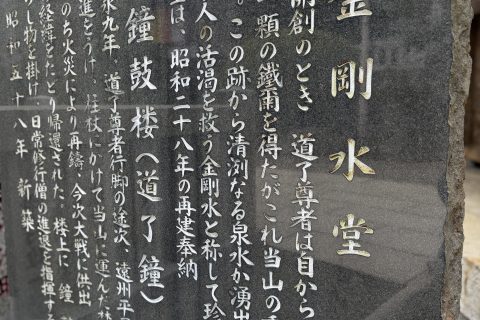 金剛水堂
開創のとき 道了尊者は自から
一顆の鐵爾を得たがこれ当山の
。この跡から清浏なる泉水か湧出
人の活渇を救う金剛水と称して珍
は、昭和二十八年の再建奉納
鐘鼓楼(道了鐘)
永九年、道了尊者行脚の途次、遠州平
進をうけ、拄杖にかけて当山に運んだ
のち火災により再鋳 今次大戦に供出
経緯をたどり帰還された。楼上に 鐘
らし物を掛け、日常修行僧の進退を指揮する
昭和五十八年 新築